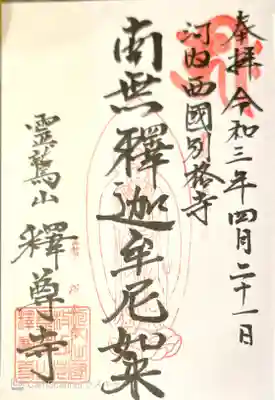 奉拝 令和三年四月二十一日
河内西國別格寺
南無釋迦牟尼如来
霊鷲山
釋尊寺